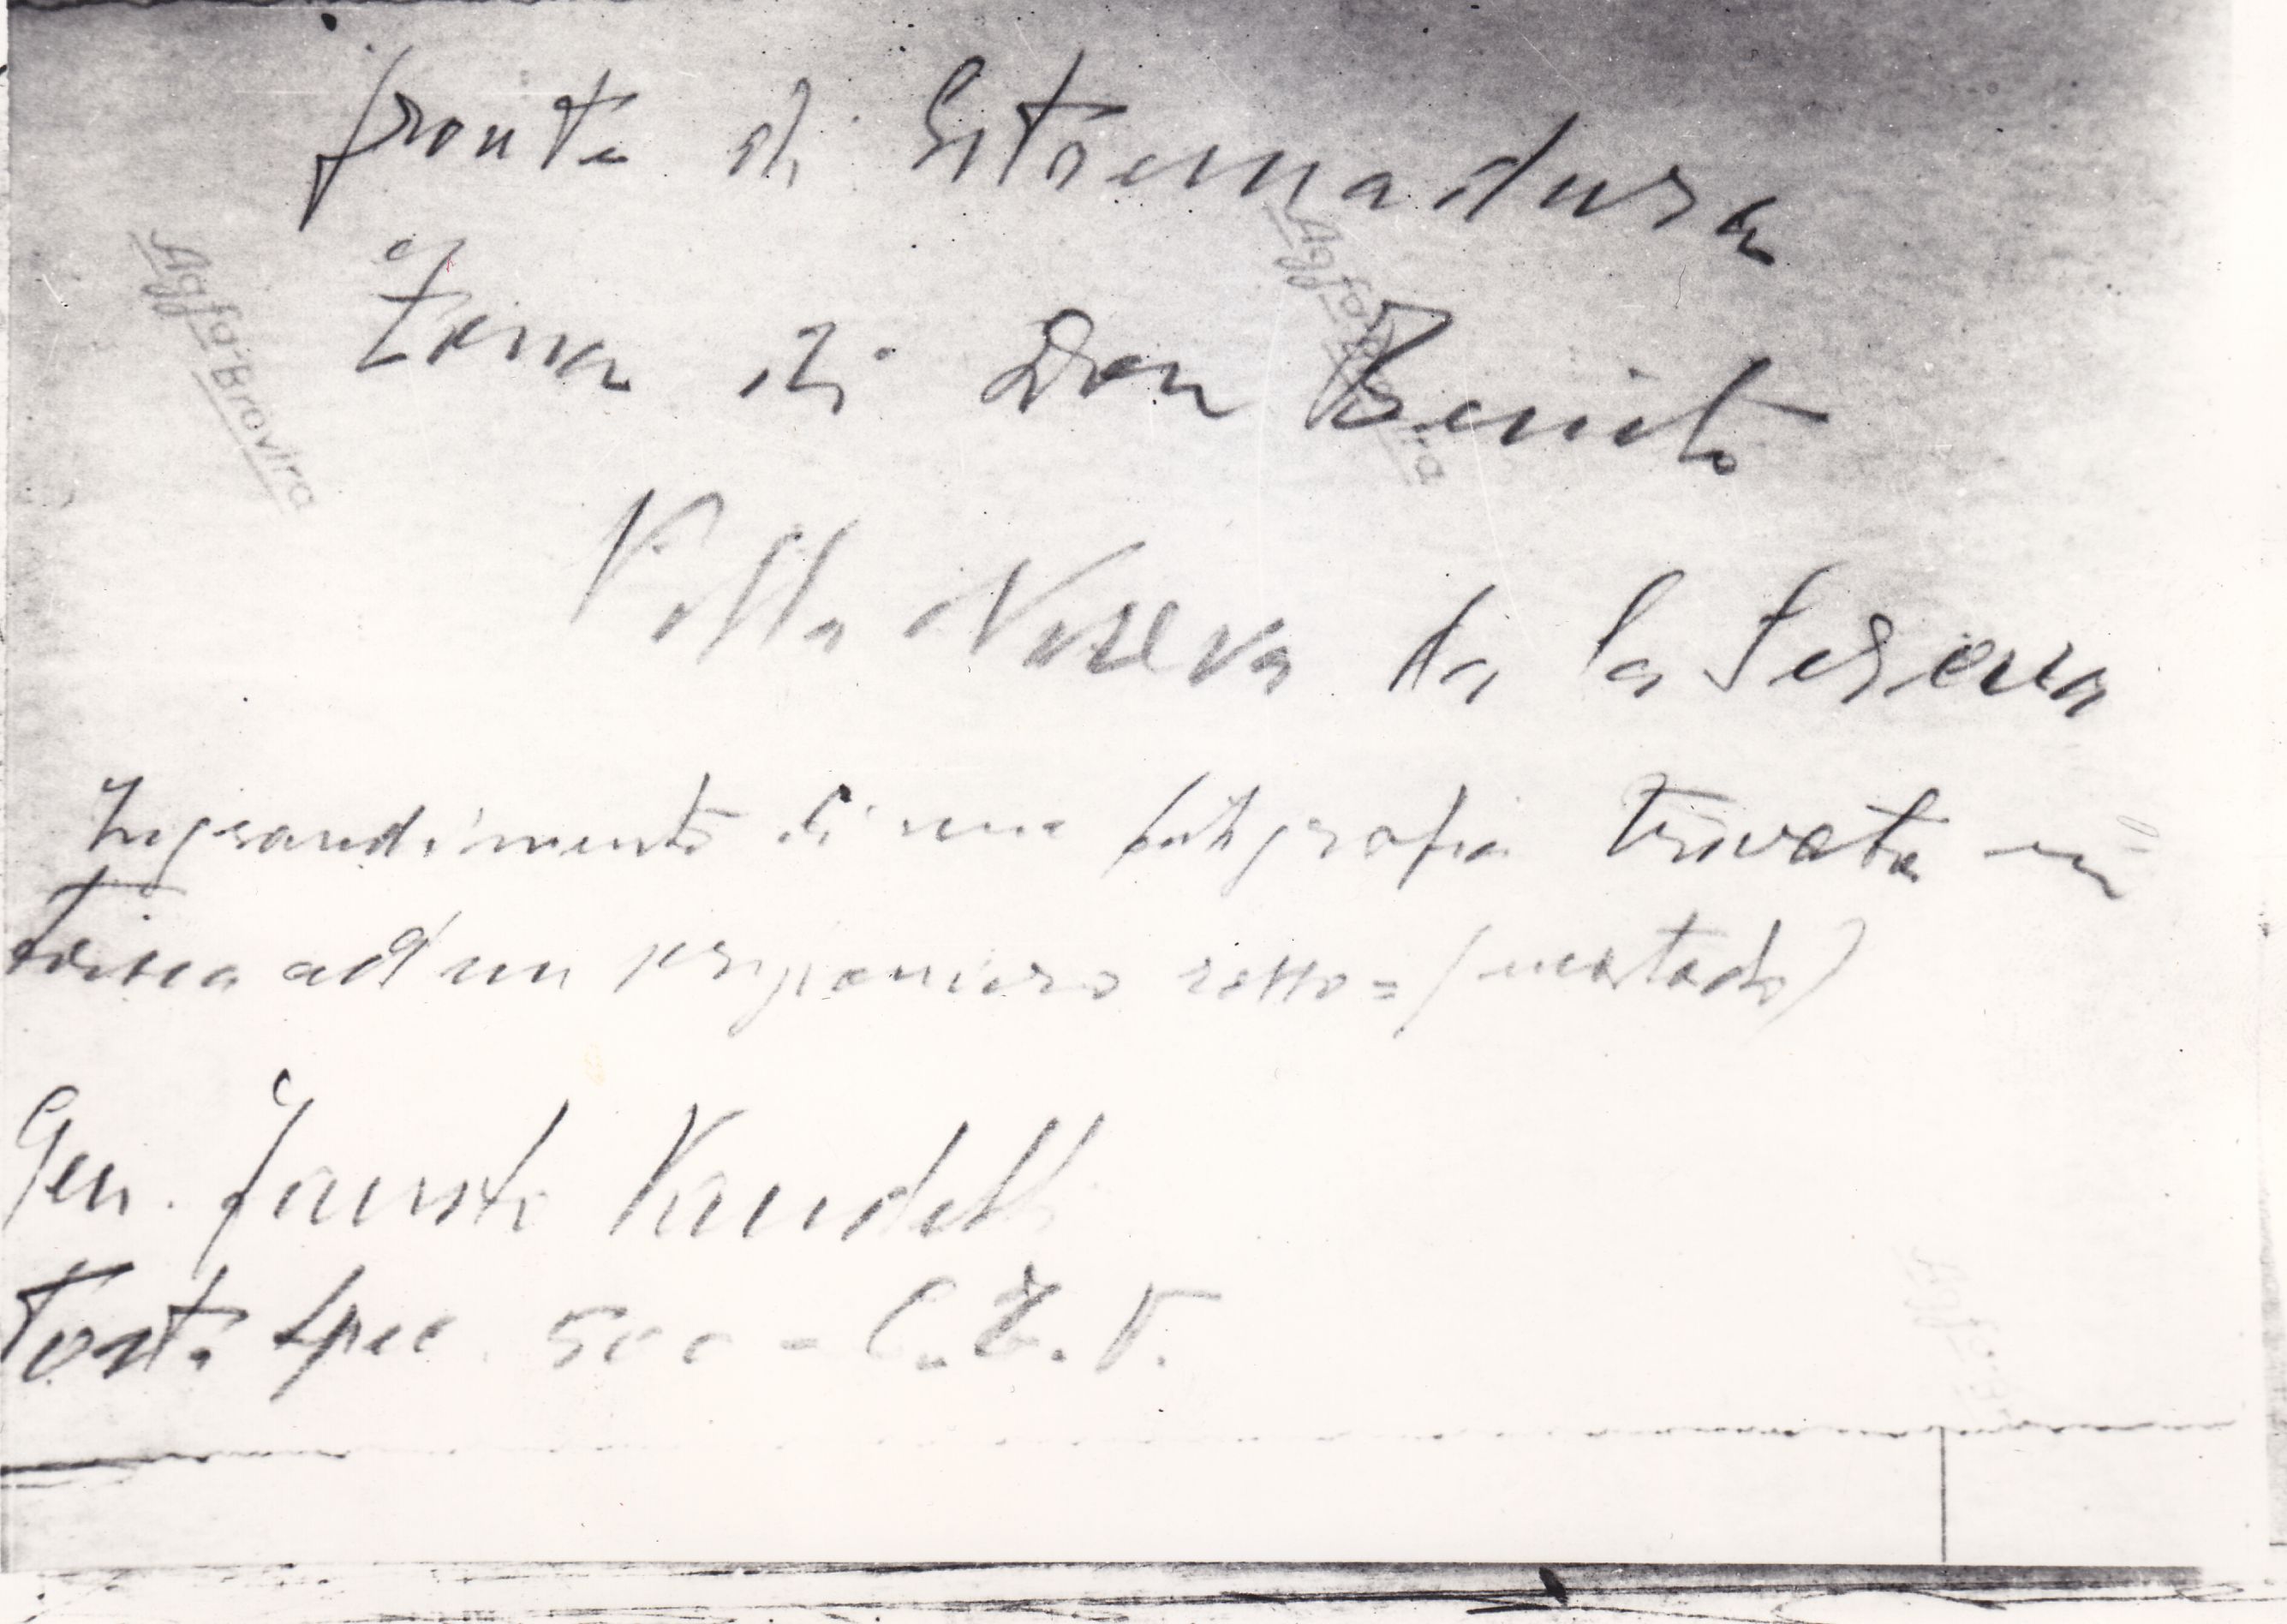 fronte di Estremadura
Zona di Don Benito
Villa Nueva da la Serena
Ingrandimento di una fotografia trovata in
tasca ad un prigioniero rosso = (
Gen. Fausto Vandelli
Posta Spec. 500 - C.T.V.
Agfa Brovira
Agfa Brovira
Agfa